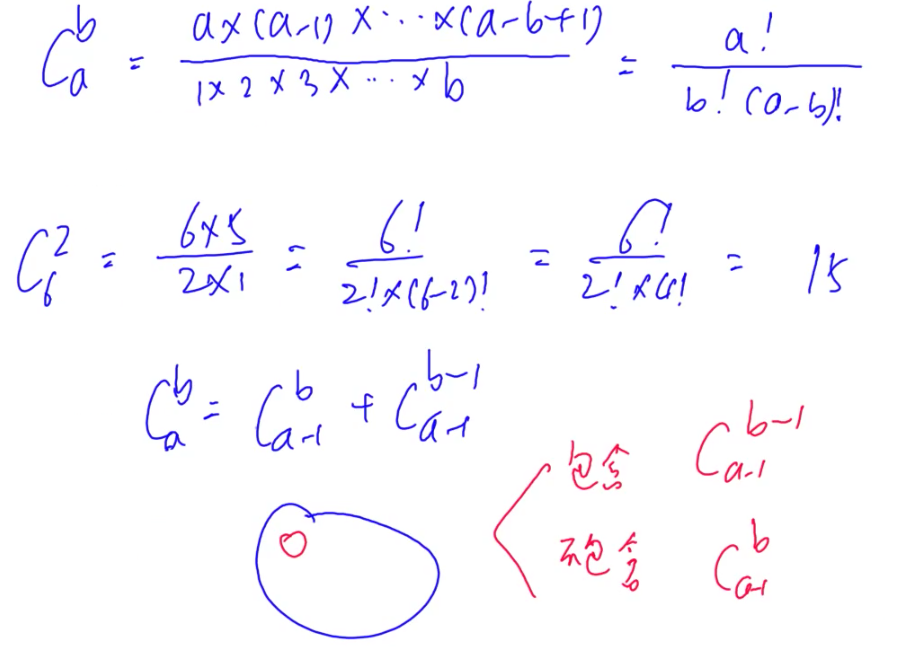 C_a^b = \frac{a×(a-1)×⋯×(a-b+1)}{1×2×3×⋯×b} = \frac{a!}{b!(a-b)!}
C_6^2 = \frac{6×5}{2×1} = \frac{6!}{2!×(6-2)!} = \frac{6!}{2!×4!} = 15
C_a^b = C_{a-1}^b + C_{a-1}^{b-1}
包含 C_{a-1}^{b-1}
不包含 C_{a-1}^b